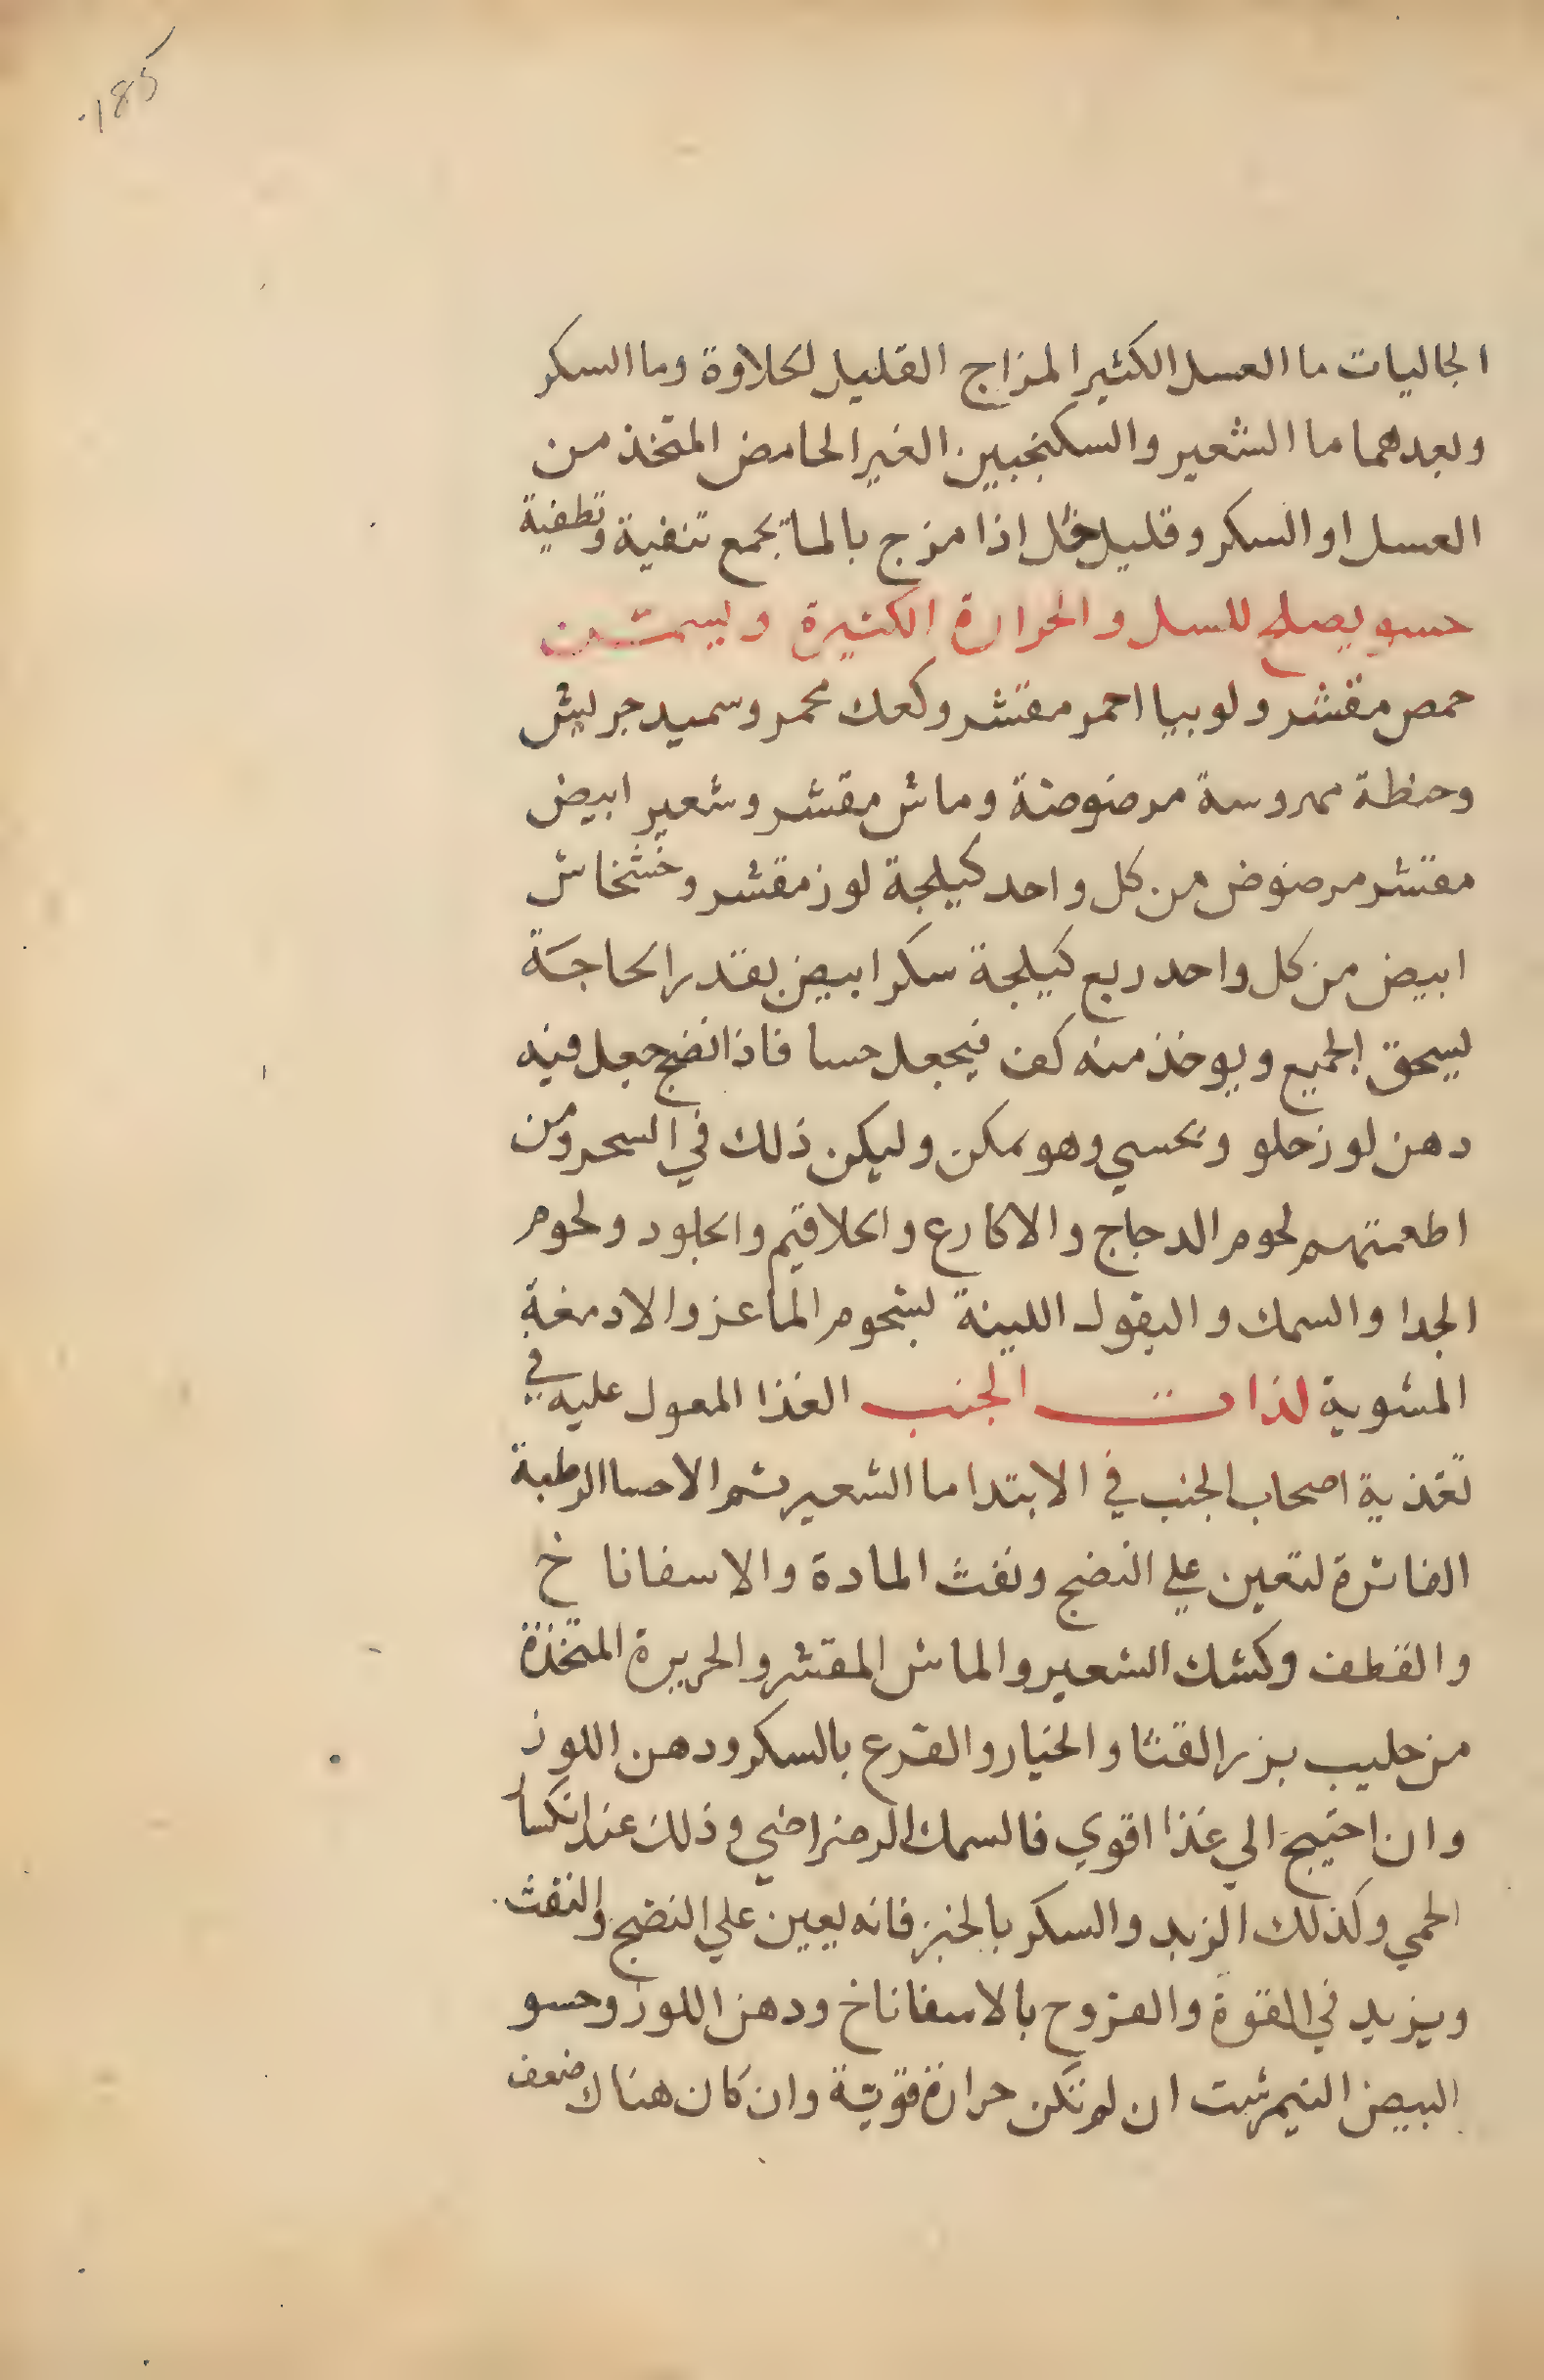 185
الجاليات ما العسل الكثير المزاج القليل الحلاوة وما السكر
وبعدهما ما الشعير والسكنجبين الغير الحامض المتخذ من
العسل او السكر وقليل خل اذا مزج بالما يجمع تنقية وتطفية
حسو يصلح للسل والحرارة الكثيرة ويسمن
حمص مقشر ولوبيا احمر مقشر وكعك محمر وسميد جريش
وحنطة مهروسة مرضوضة وماش مقشر وشعير ابيض
مقشر مرضوض من كل واحد كيلجة لوز مقشر وخشخاش
ابيض من كل واحد ربع كيلجة سكر ابيض بقدر الحاجة
يسحق الجميع ويوخذ منه كف فيجعل حسا فاذا نضج جعل فيه
دهن لوز حلو ويحسي وهو ممكن وليكن ذلك في السحر ومن
اطعمتهم لحوم الدجاج والاكارع والحلاقيم والجلود ولحوم
الجدا والسمك والبقول اللينة بشحوم الماعز والادمغة
المشوية لذات الجنب الغذا المعول عليه في
تغذية اصحاب الجنب في الابتدا ما الشعير ثم الاحسا الرطبة
الفاترة لتعين علي النضج ونفث المادة والاسفاناخ
والقطف وكشك الشعير والماش المقشر والحريرة المتخذة
من حليب بزر القثا والخيار والقرع بالسكر ودهن اللوز
وان احتيج الي غذا اقوي فالسمك الرضراضي وذلك عند انكسار
الحمي وكذلك الزبد والسكر بالخبز فانه يعين علي النضج والنفث
ويزيد في القوة والفروج بالاسفاناخ ودهن اللوز وحسو
البيض النيمرشت ان لم تكن حرارة قوية وان كان هناك ضعف